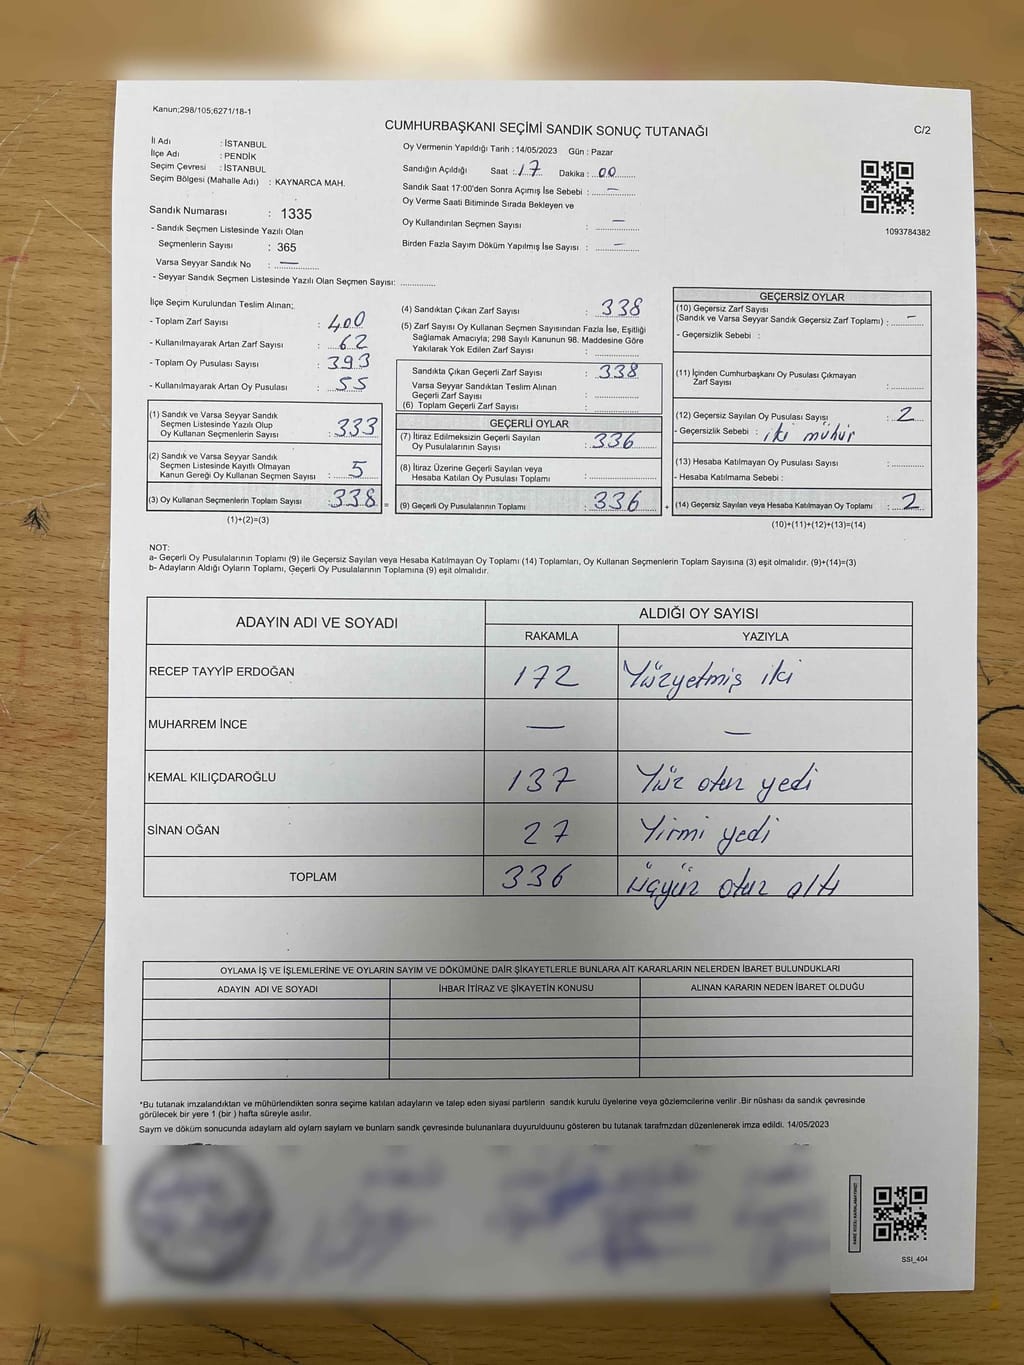 Kanun;298/105;6271/18-1
CUMHURBAŞKANI SEÇİMİ SANDIK SONUÇ TUTANAĞI
C/2
İl Adı : İSTANBUL
İlçe Adı : PENDİK
Seçim Çevresi : İSTANBUL
Seçim Bölgesi (Mahalle Adı) : KAYNARCA MAH.
Sandık Numarası : 1335
- Sandık Seçmen Listesinde Yazılı Olan
Seçmenlerin Sayısı : 365
Varsa Seyyar Sandık No : —
- Seyyar Sandık Seçmen Listesinde Yazılı Olan Seçmen Sayısı: ..............
Oy Vermenin Yapıldığı Tarih : 14/05/2023 Gün : Pazar
Sandığın Açıldığı Saat : 17 Dakika : 00
Sandık Saat 17:00'den Sonra Açımış İse Sebebi : —
Oy Verme Saati Bitiminde Sırada Bekleyen ve
Oy Kullandırılan Seçmen Sayısı : —
Birden Fazla Sayım Döküm Yapılmış İse Sayısı : —
1093784382
İlçe Seçim Kurulundan Teslim Alınan;
- Toplam Zarf Sayısı : 400
- Kullanılmayarak Artan Zarf Sayısı : 62
- Toplam Oy Pusulası Sayısı : 393
- Kullanılmayarak Artan Oy Pusulası : 55
(1) Sandık ve Varsa Seyyar Sandık
Seçmen Listesinde Yazılı Olup
Oy Kullanan Seçmenlerin Sayısı : 333
(2) Sandık ve Varsa Seyyar Sandık
Seçmen Listesinde Kayıtlı Olmayan
Kanun Gereği Oy Kullanan Seçmen Sayısı : 5
(3) Oy Kullanan Seçmenlerin Toplam Sayısı : 338 =
(1)+(2)=(3)
(4) Sandıktan Çıkan Zarf Sayısı : 338
(5) Zarf Sayısı Oy Kullanan Seçmen Sayısından Fazla İse, Eşitliği
Sağlamak Amacıyla; 298 Sayılı Kanunun 98. Maddesine Göre
Yakılarak Yok Edilen Zarf Sayısı : ..............
Sandıkta Çıkan Geçerli Zarf Sayısı : 338
Varsa Seyyar Sandıktan Teslim Alınan
Geçerli Zarf Sayısı : ..............
(6) Toplam Geçerli Zarf Sayısı : ..............
GEÇERLİ OYLAR
(7) İtiraz Edilmeksizin Geçerli Sayılan
Oy Pusulasının Sayısı : 336
(8) İtiraz Üzerine Geçerli Sayılan veya
Hesaba Katılan Oy Pusulası Toplamı : ..............
(9) Geçerli Oy Pusulalarının Toplamı : 336 +
GEÇERSİZ OYLAR
(10) Geçersiz Zarf Sayısı
(Sandık ve Varsa Seyyar Sandık Geçersiz Zarf Toplamı) : —
- Geçersizlik Sebebi :
(11) İçinden Cumhurbaşkanı Oy Pusulası Çıkmayan
Zarf Sayısı : ..............
(12) Geçersiz Sayılan Oy Pusulası Sayısı : 2
- Geçersizlik Sebebi : iki mühür
(13) Hesaba Katılmayan Oy Pusulası Sayısı : ..............
- Hesaba Katılmama Sebebi :
(14) Geçersiz Sayılan veya Hesaba Katılmayan Oy Toplamı : 2
(10)+(11)+(12)+(13)=(14)
NOT:
a- Geçerli Oy Pusulalarının Toplamı (9) ile Geçersiz Sayılan veya Hesaba Katılmayan Oy Toplamı (14) Toplamları, Oy Kullanan Seçmenlerin Toplam Sayısına (3) eşit olmalıdır. (9)+(14)=(3)
b- Adayların Aldığı Oyların Toplamı, Geçerli Oy Pusulalarının Toplamına (9) eşit olmalıdır.
ADAYIN ADI VE SOYADI ALDIĞI OY SAYISI
RAKAMLA YAZIYLA
RECEP TAYYİP ERDOĞAN 172 Yüzyetmiş iki
MUHARREM İNCE — —
KEMAL KILIÇDAROĞLU 137 Yüz otuz yedi
SİNAN OĞAN 27 Yirmi yedi
TOPLAM 336 üçyüz otuz altı
OYLAMA İŞ VE İŞLEMLERİNE VE OYLARIN SAYIM VE DÖKÜMÜNE DAİR ŞİKAYETLERLE BUNLARA AİT KARARLARIN NELERDEN İBARET BULUNDUKLARI
ADAYIN ADI VE SOYADI İHBAR İTİRAZ VE ŞİKAYETİN KONUSU ALINAN KARARIN NEDEN İBARET OLDUĞU
*Bu tutanak imzalandıktan ve mühürlendikten sonra seçime katılan adayların ve talep eden siyasi partilerin sandık kurulu üyelerine veya gözlemcilerine verilir .Bir nüshası da sandık çevresinde
görülecek bir yere 1 (bir ) hafta süreyle asılır.
Saym ve döküm sonucunda adaylarn ald oylarn saylarn ve bunlarn sandk çevresinde bulunanlara duyurulduunu gösteren bu tutanak tarafmzdan düzenlenerek imza edildi. 14/05/2023
SSI_404